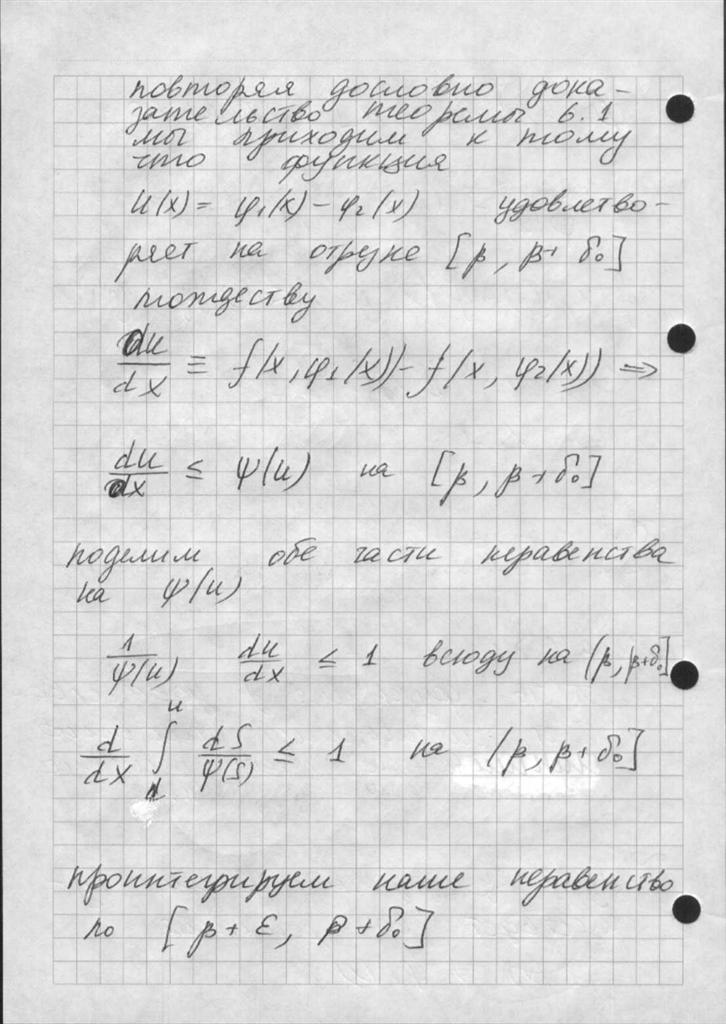 повторяя дословно дока-
зательство теоремы 6.1
мы приходим к тому
что функция
u(x) = φ₁(x) − φ₂(x) удовлетво-
ряет на отрезке [β, β + δ₀]
тождеству
du/dx ≡ f(x, φ₁(x)) − f(x, φ₂(x)) ⇒
du/dx ≤ ψ(u) на [β, β + δ₀]
поделим обе части неравенства
на ψ(u)
1/ψ(u) du/dx ≤ 1 всюду на (β, β+δ₀]
d/dx ∫_α^u dS/ψ(S) ≤ 1 на (β, β + δ₀]
проинтегрируем наше неравенство
по [β + ε, β + δ₀]